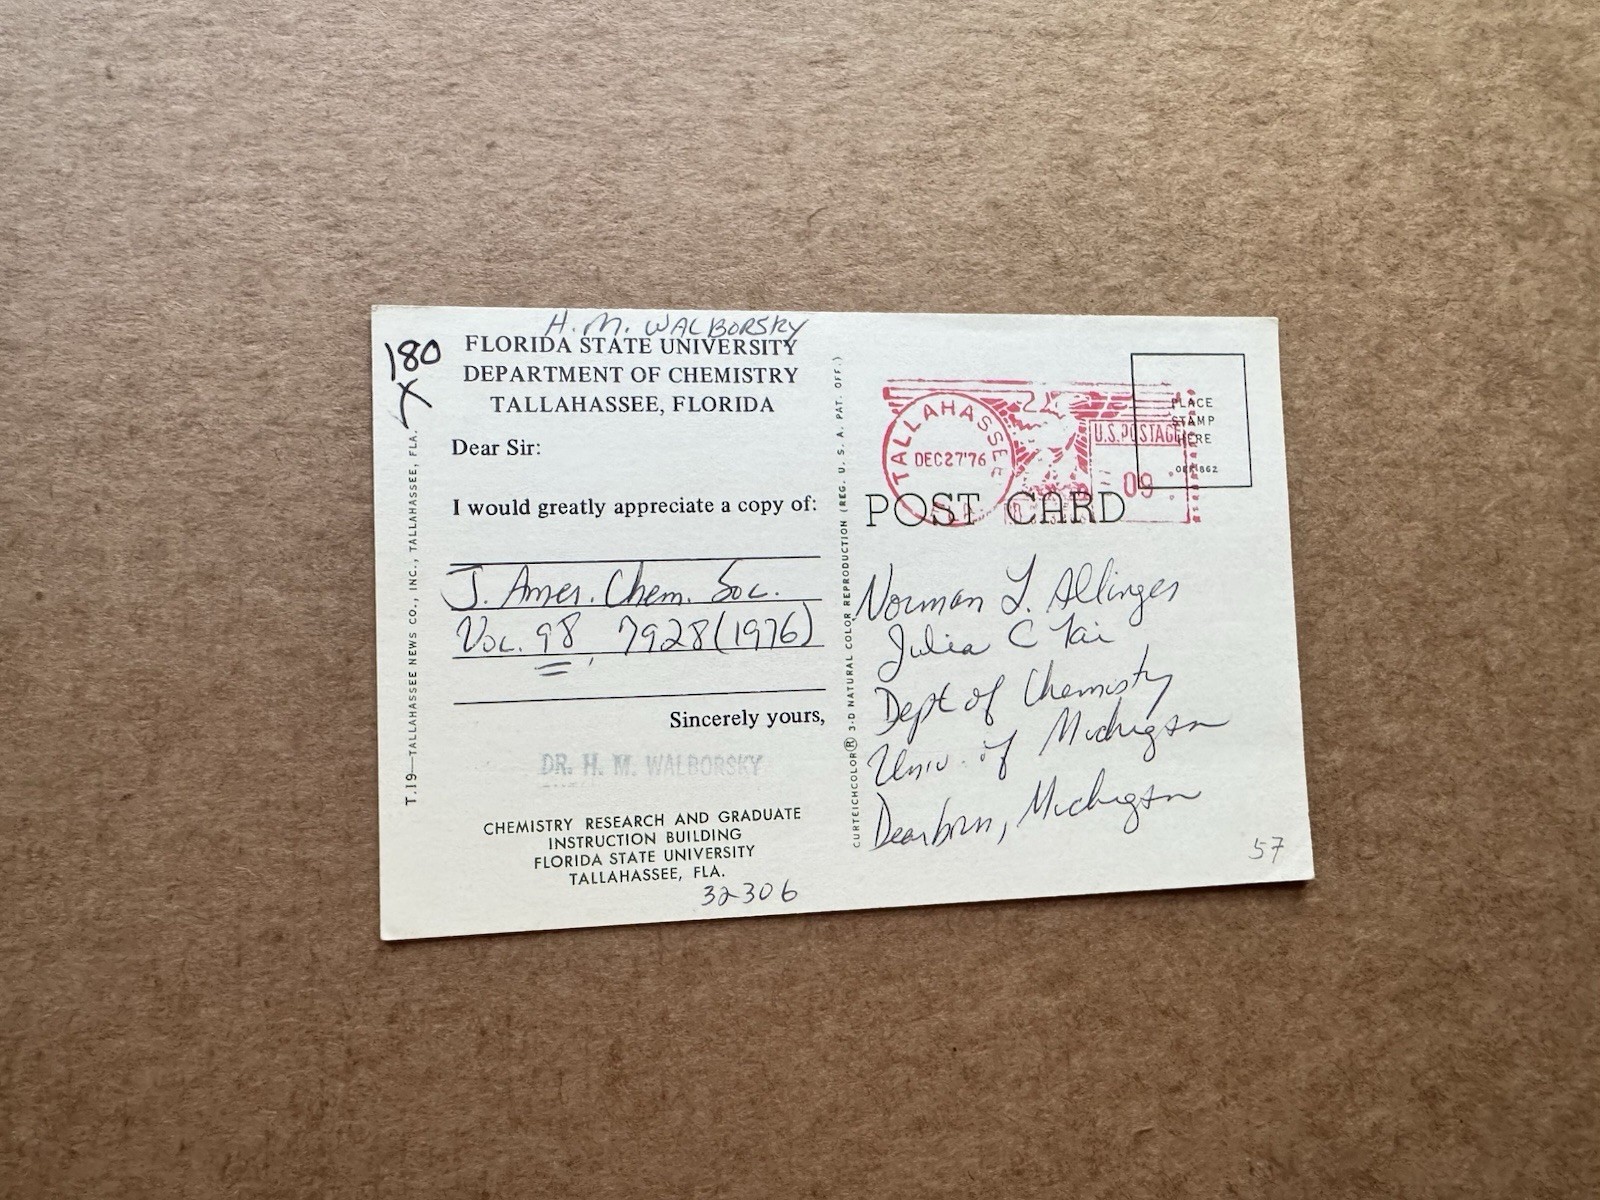 H. M. WALBORSKY
180
X
FLORIDA STATE UNIVERSITY
DEPARTMENT OF CHEMISTRY
TALLAHASSEE, FLORIDA
Dear Sir:
I would greatly appreciate a copy of:
J. Amer. Chem. Soc.
Vol. 98, 7928 (1976)
Sincerely yours,
DR. H. M. WALBORSKY
CHEMISTRY RESEARCH AND GRADUATE
INSTRUCTION BUILDING
FLORIDA STATE UNIVERSITY
TALLAHASSEE, FLA.
32306
T.19—TALLAHASSEE NEWS CO., INC., TALLAHASSEE, FLA.
CURTEICHCOLOR® 3-D NATURAL COLOR REPRODUCTION (REG. U. S. A. PAT. OFF.)
TALLAHASSEE
DEC27'76
U.S.POSTAGE
09
PLACE
STAMP
HERE
POST CARD
Norman L. Allinger
Julia C Tai
Dept of Chemistry
Univ. of Michigan
Dearborn, Michigan
57